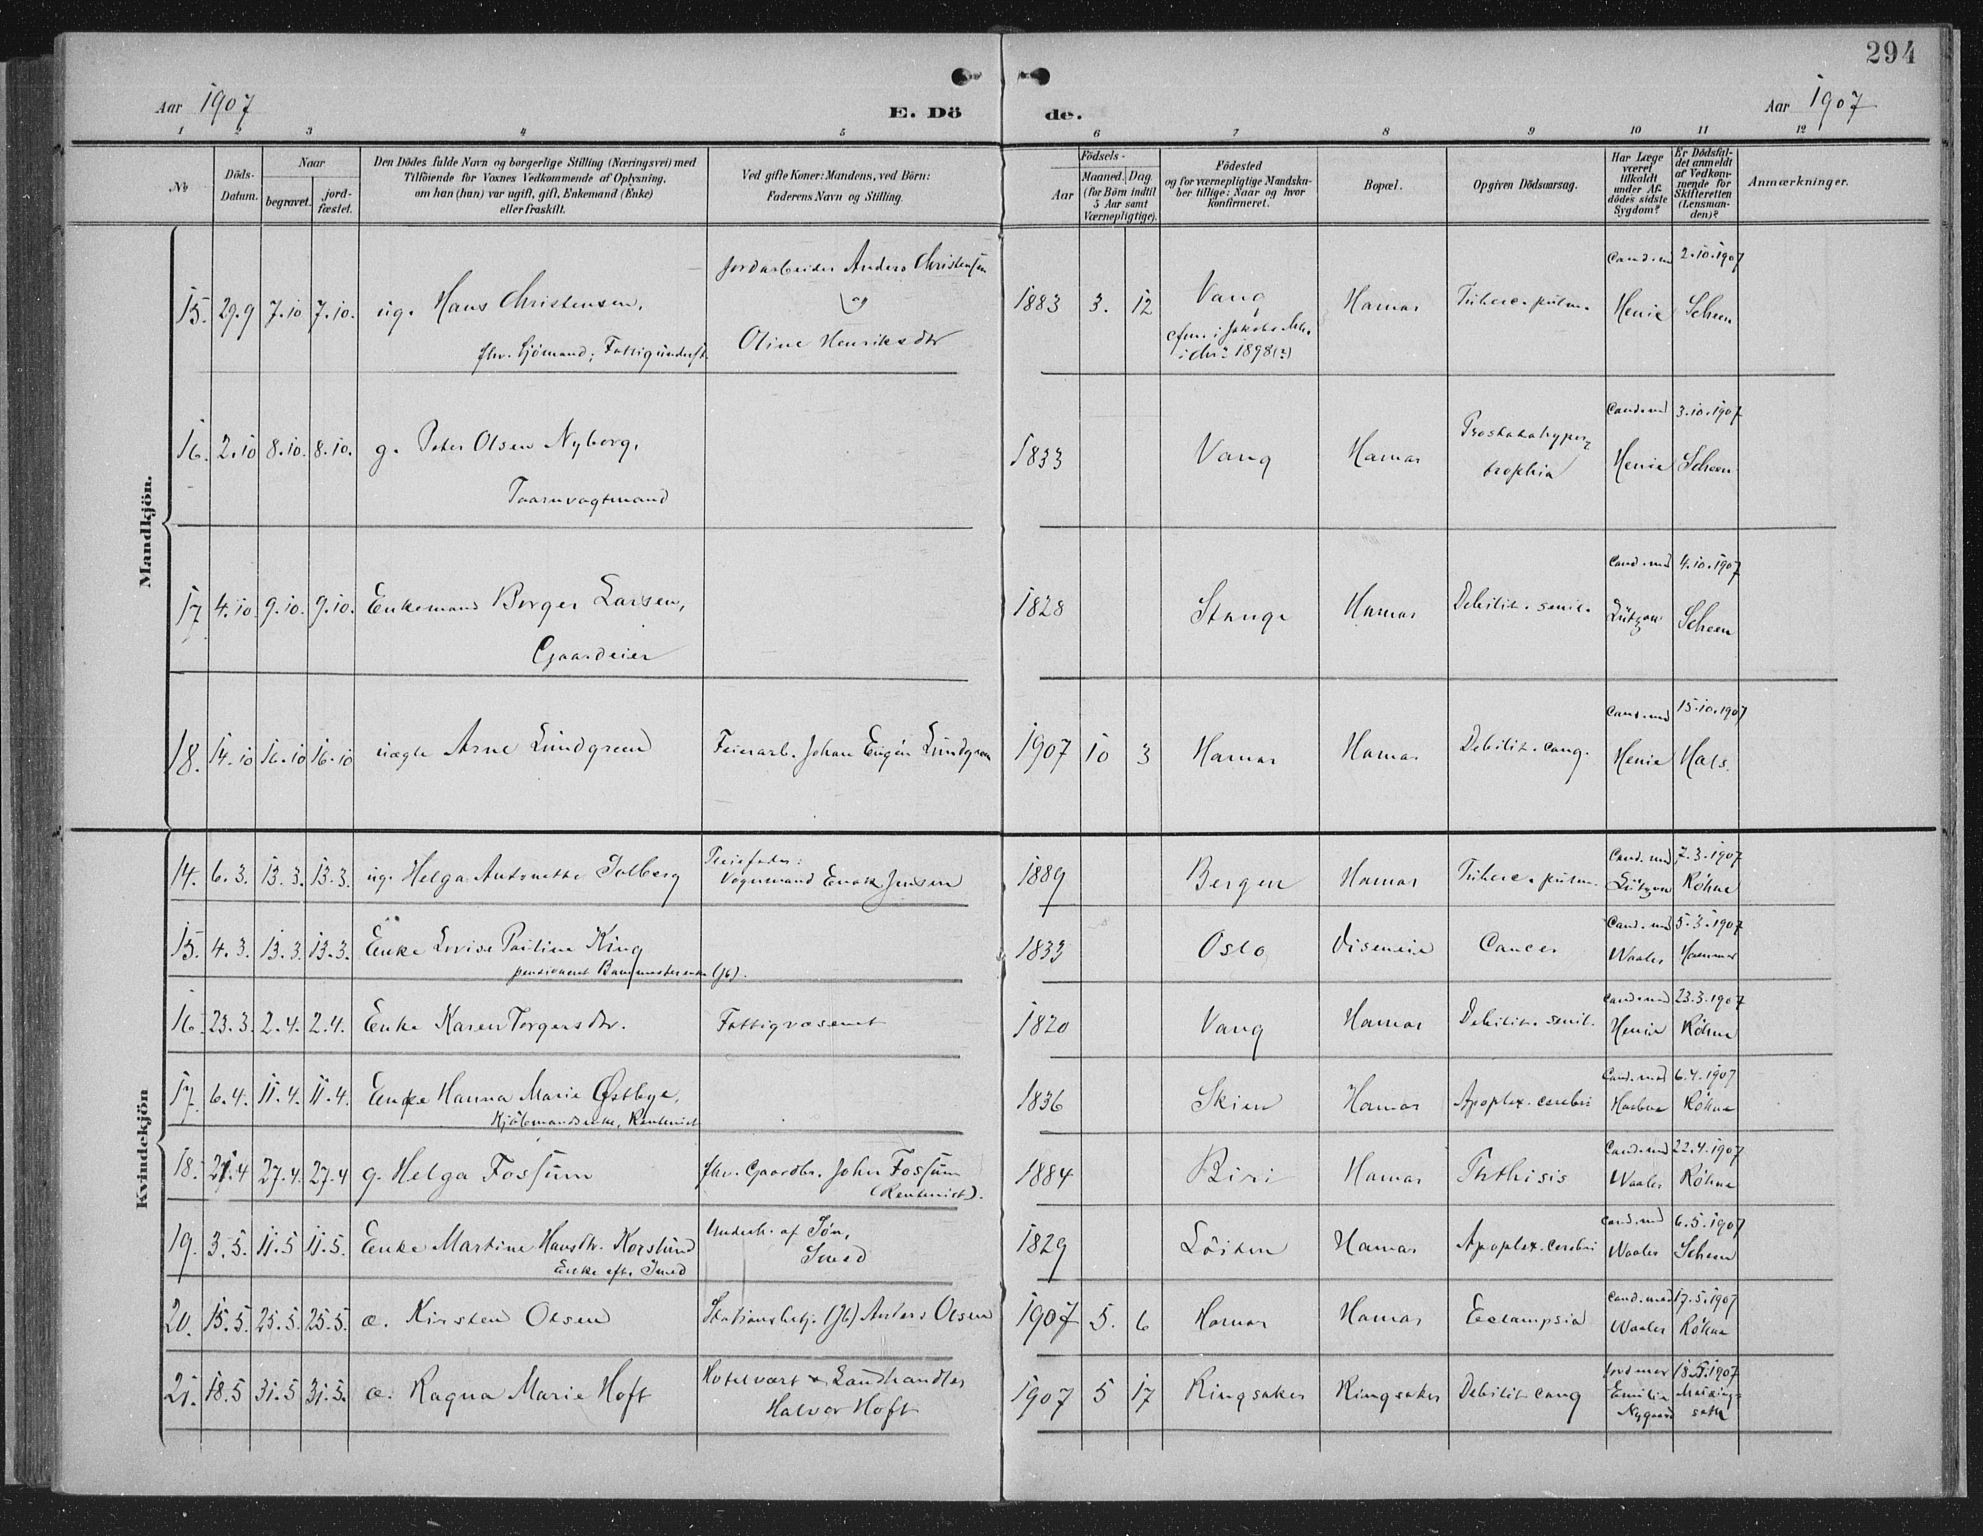 294
Aar 1907
E. Dö
de.
Aar 1907
1 2 3 4 5 6 7 8 9 10 11 12
No
Döds-
Datum.
Naar
begravet.
jord-
fæstet.
Den Dödes fulde Navn og borgerlige Stilling (Næringsvei) med
Tilföiende for Voxnes Vedkommende af Oplysning,
om han (hun) var ugift, gift, Enkemand (Enke)
eller fraskilt.
Ved gifte Koner: Mandens, ved Börn:
Faderens Navn og Stilling.
Födsels-
Aar
Maaned.
Dag
(for Börn indtil
5 Aar samt
Værnepligtige).
Födested
og for værnepligtige Mandska-
ber tillige: Naar og hvor
konfirmeret.
Bopæl.
Opgiven Dödsaarsag.
Har Læge
været
tilkaldt
under Af-
dödes sidste
Sygdom?
Er Dödsfal-
det anmeldt
af Vedkom-
mende for
Skifteretten
(Lensman-
den)?
Anmærkninger.
Mandkjön.
15. 29.9 7.10 7.10. ug. Hans Christensen,
fhv. Sjömand; Fattigunderst.
Jordarbeider Anders Christensen
og
Oline Henriksdtr
1883 3. 12 Vang
cfm. i Jakobs
1898(?)
Hamar Tuberc. pulm. Cand. med Henie 2.10.1907 Scheen
16. 2.10 8.10. 8.10. g. Peter Olsen Nyborg,
Taarnvagtmand
1833 Vang Hamar Prostatahyper-
trophia
Cand. med Henie 3.10.1907 Scheen
17 4.10 9.10. 9.10. Enkemand Borger Larsen,
Gaardeier
1828 Stange Hamar Debilit. senil. Cand. med Lützow 4.10.1907 Scheen
18. 14.10 16.10 16.10 uægte Arne Lundgreen Feierarb. Johan Eugén Lundgren
1907 10 3 Hamar Hamar Debilit. cong. Cand. med Henie 15.10.1907 Hals.
Kvindekjön
14. 6.3. 13.3. 13.3. ug. Helga Antonette Solberg Pleiefader:
Vognmand Enok Jensen
1889 Bergen Hamar Tuberc. pulm. Cand. med Lützow 7.3.1907 Röhne
15. 4.3. 13.3. 13.3. Enke Lovise Pauline King
pensioneret Banemesterenke (Jb).
1833 Oslo Diseneie Cancer Cand. med Waaler 5.3.1907
16. 23.3. 2.4. 2.4. Enke Karen Torgersdtr. Fattigvæsenet
1820 Vang Hamar Debilit. senil. Cand. med Henie 23.3.1907 Röhne
17. 6.4. 11.4. 11.4. Enke Hanna Marie Østbye,
Kjöbmandsenke, Rentenist
1836 Skien Hamar Apoplex. cerebri Cand. med 6.4.1907 Röhne
18. 21.4 27.4. 27.4 g. Helga Fossum fhv. Gaardbr. John Fossum
(Rentenist).
1884 Biri Hamar Phthisis Cand. med Waaler 22.4.1907 Röhne
19. 3.5. 11.5 11.5. Enke Martine Hansdtr. Korslund
Enke eft. Smed
Underh. af Sön,
Smed
1829 Löiten Hamar Apoplex. cerebri Cand. med Waaler 6.5.1907 Scheen
20. 15.5. 25.5. 25.5. æ. Kirsten Olsen Stationsbetj. (Jb) Anders Olsen
1907 5. 6 Hamar Hamar Eclampsia Cand. med Waaler 17.5.1907 Röhne
21. 18.5 31.5 31.5. æ. Ragna Marie Hoft Hotelvært & Landhandler
Halvor Hoft
1907 5 17 Ringsaker Ringsaker Debilit. cong Jordmor
Emilie
Nygaard
18.5.1907